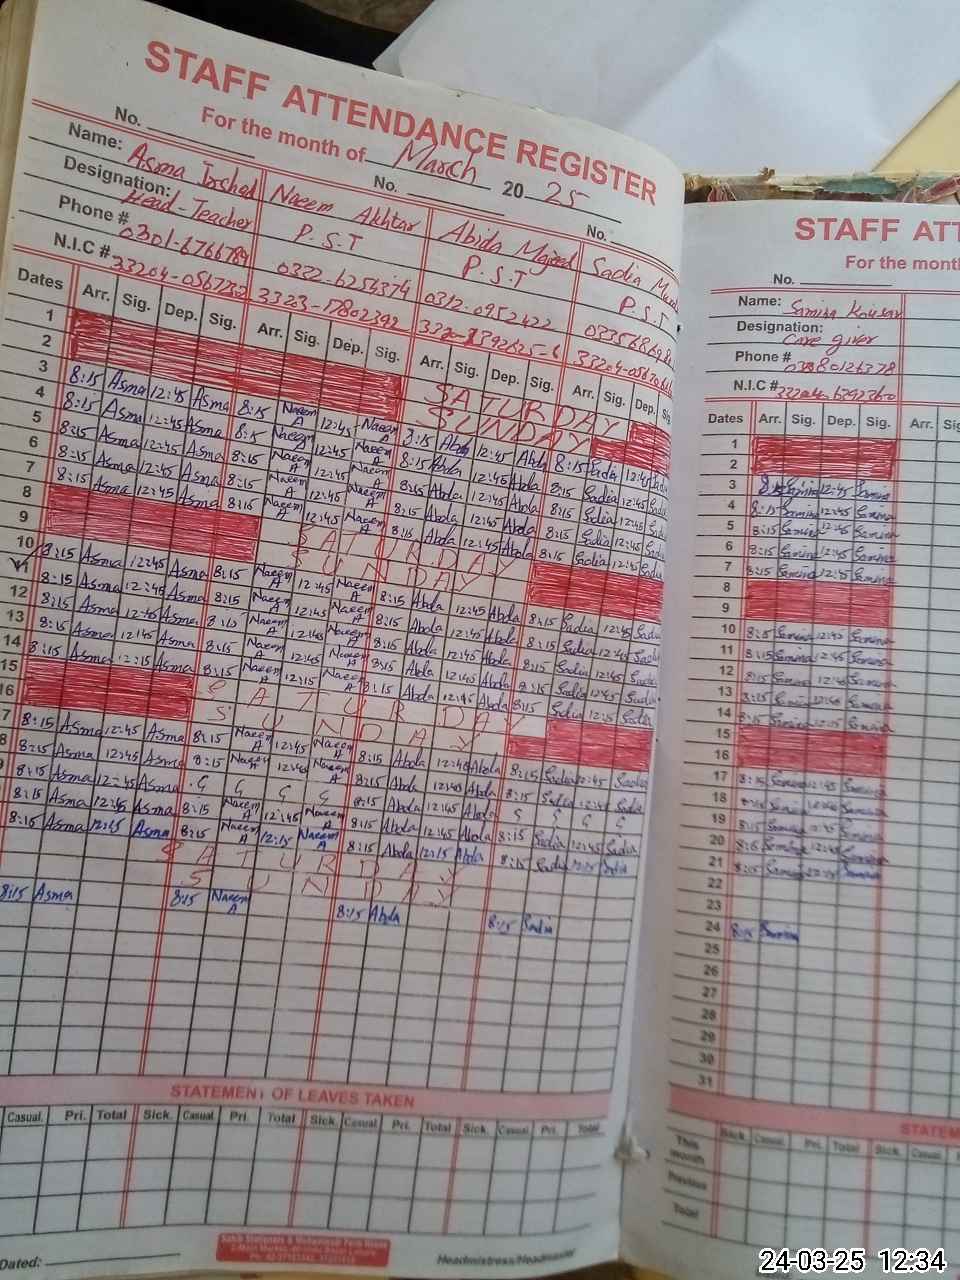 STAFF ATTENDANCE REGISTER
For the month of March 2025
No. No. No.
Name: Asma Irshad Naeem Akhtar Abida Majeed Sadia
Designation: Head-Teacher P.S.T P.S.T P.S.T
Phone # 0322-6256374 0312-0952422
N.I.C #
Dates Arr. Sig. Dep. Sig. Arr. Sig. Dep. Sig. Arr. Sig. Dep. Sig. Arr. Sig. Dep. Sig.
1 SATURDAY
2 SUNDAY
3 8:15 Asma 12:45 Asma 8:15 Naeem A 12:45 Naeem A 8:15 Abda 12:45 Abda 8:15 Sadia 12:45 Sadia
4 8:15 Asma 12:45 Asma 8:15 Naeem A 12:45 Naeem A 8:15 Abda 12:45 Abda 8:15 Sadia 12:45 Sadia
5 8:15 Asma 12:45 Asma 8:15 Naeem A 12:45 Naeem A 8:15 Abda 12:45 Abda 8:15 Sadia 12:45 Sadia
6 8:15 Asma 12:45 Asma 8:15 Naeem A 12:45 Naeem A 8:15 Abda 12:45 Abda 8:15 Sadia 12:45 Sadia
7 8:15 Asma 12:45 Asma 8:15 Naeem A 12:45 Naeem A 8:15 Abda 12:45 Abda 8:15 Sadia 12:45 Sadia
8 SATURDAY
9 SUNDAY
10 8:15 Asma 12:45 Asma 8:15 Naeem A 12:45 Naeem 8:15 Abda 12:45 Abda 8:15 Sadia 12:45 Sadia
11 8:15 Asma 12:45 Asma 8:15 Naeem A 12:45 Naeem A 8:15 Abda 12:45 Abda 8:15 Sadia 12:45 Sadia
12 8:15 Asma Asma Naeem A Naeem A 8:15 Abda Abda 8:15 Sadia Sadia
13 8:15 Asma 12:45 Asma 8:15 Naeem A 12:45 Naeem A 8:15 Abda Abda 8:15 Sadia 12:45 Sadia
14 8:15 Asma 12:15 Asma 8:15 Naeem A 12:15 Naeem A 8:15 Abda Abda 8:15 Sadia Sadia
15 SATURDAY
16 SUNDAY
7 8:15 Asma 12:45 Asma 8:15 Naeem A 12:45 Naeem A 8:15 Abda Abda 8:15 Sadia 12:45 Sadia
8 8:15 Asma 12:45 Asma 8:15 Naeem A Naeem A 8:15 Abda Abda 8:15 Sadia 12:45 Sadia
8:15 Asma 12:45 Asma 8:15 Abda 12:45 Abda
8:15 Asma 12:45 Asma 8:15 Naeem A 12:45 Naeem A 8:15 Abda 12:45 Abda 8:15 Sadia 12:45 Sadia
8:15 Asma 12:15 Asma 8:15 Naeem A 12:15 Naeem A 8:15 Abda 12:15 Abda 8:15 Sadia 12:15 Sadia
SATURDAY
SUNDAY
8:15 Asma 8:15 Naeem A 8:15 Abda 8:15 Sadia
STATEMENT OF LEAVES TAKEN
Casual. Pri. Total Sick. Casual Pri. Total Sick. Casual Pri. Total Sick. Casual. Pri. Total
Dated: Headmistress/Headmaster
STAFF ATT
For the month
No.
Name: Samina Kousar
Designation: Care giver
Phone #
N.I.C #
Dates Arr. Sig. Dep. Sig. Arr. Sig
1
2
3 8:15 Samina 12:45 Samina
4 8:15 Samina 12:45 Samina
5 8:15 Samina 12:45 Samina
6 8:15 Samina 12:45 Samina
7 8:15 Samina 12:45 Samina
8
9
10 8:15 Samina 12:45 Samina
11 8:15 Samina 12:45 Samina
12 8:15 Samina 12:45 Samina
13 8:15 Samina Samina
14 8:15 Samina Samina
15
16
17 8:15 Samina 12:45 Samina
18 Samina Samina
19 8:15 Samina Samina
20 Samina Samina
21 8:15 Samina Samina
22
23
24 8:15 Samina
25
26
27
28
29
30
31
STATEM
Sick. Casual. Pri. Total Sick. Casual
This month
Previous
Total
24-03-25 12:34